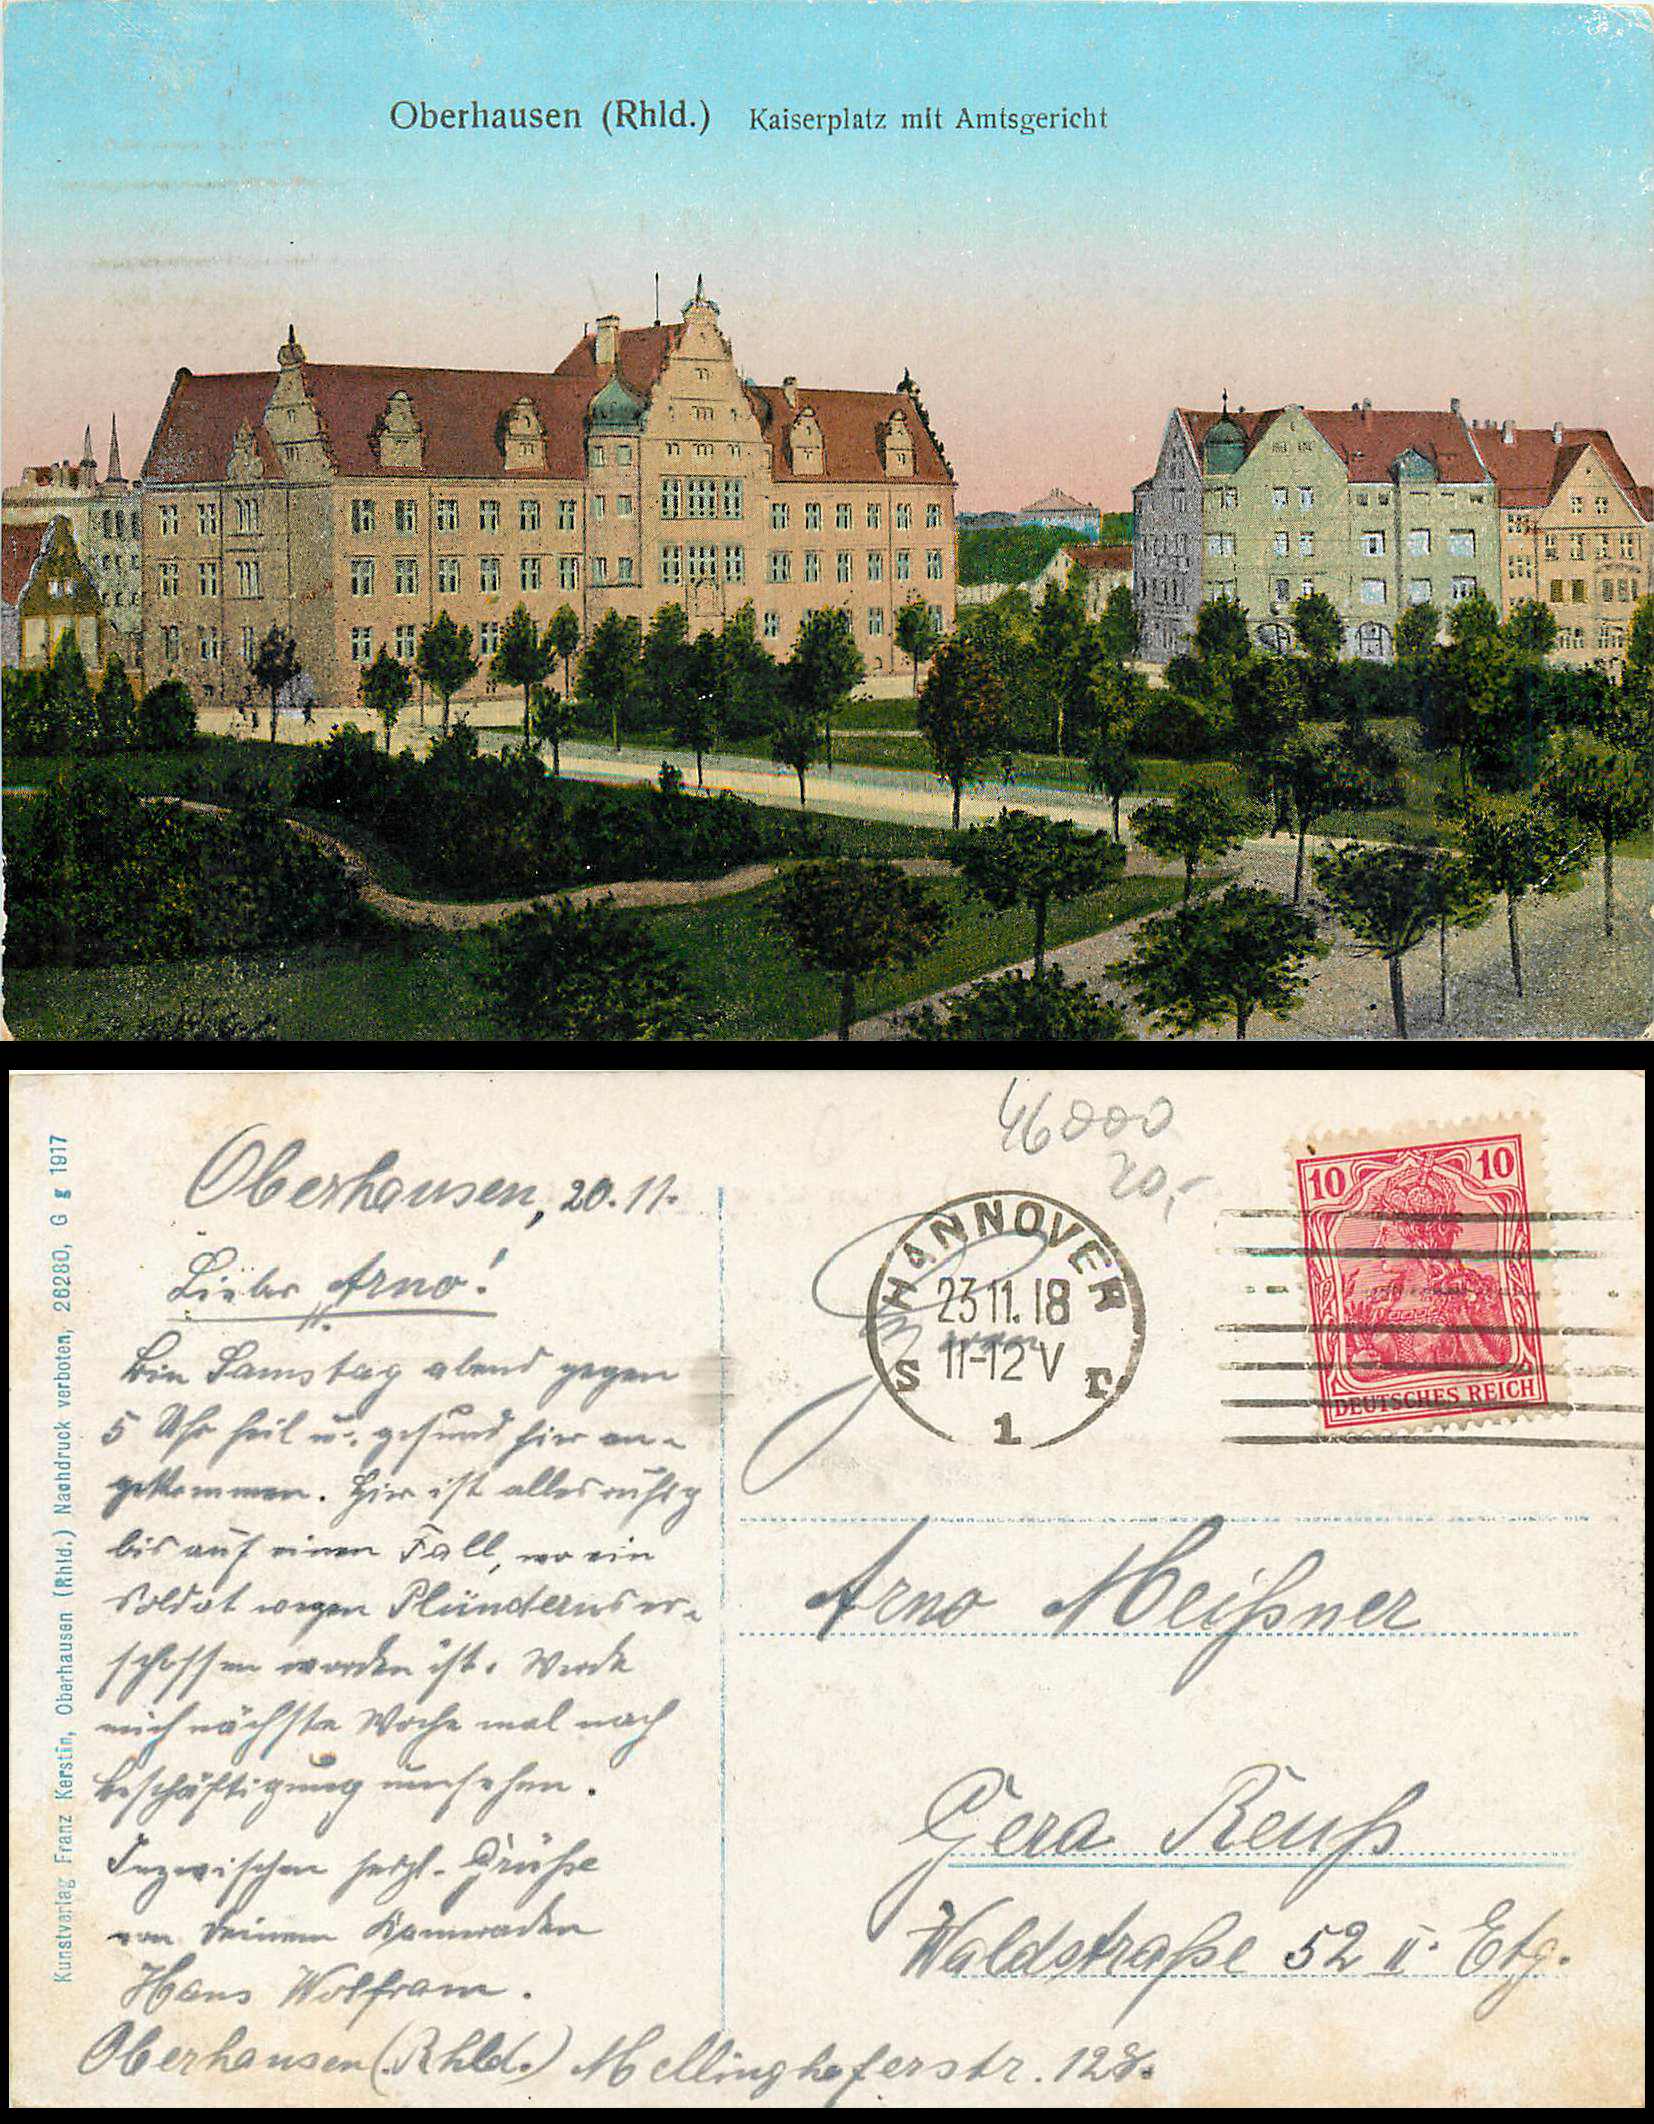 Oberhausen (Rhld.) Kaiserplatz mit Amtsgericht
Kunstverlag Franz Kerstin, Oberhausen (Rhld.) Nachdruck verboten, 26280, G g 1917
Oberhausen, 20.11.
Lieber Arno!
Bin Samstag abend gegen
5 Uhr heil u. gesund hier an-
gekommen. Hier ist alles ruhig
bis auf einen Fall, wo ein
Soldat wegen Plünderns er-
schossen worden ist. Werde
mich nächste Woche mal nach
Beschäftigung umsehen.
Inzwischen herzl. Grüße
von Deinem Kameraden
Hans Wolfram.
Oberhausen (Rhld.) Mellinghoferstr. 128.
46000
20,-
HANNOVER
23 11. 18
11-12 V
S 1 r
10 10
DEUTSCHES REICH
Arno Meißner
Gera Reuß
Waldstraße 52 II. Etg.